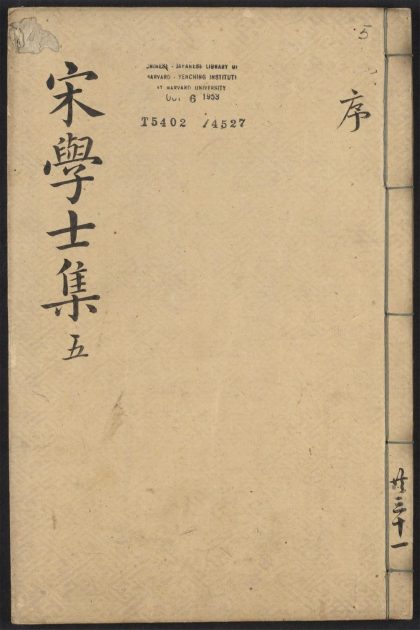 5
序
CHINESE - JAPANESE LIBRARY OF
HARVARD - YENCHING INSTITUTE
AT HARVARD UNIVERSITY
OCT 6 1953
T5402 /4527
宋學士集 五
三十一